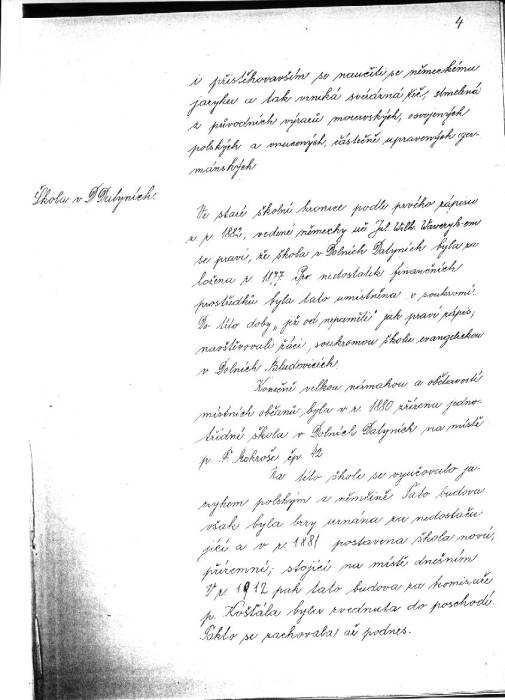 4
i přistěhovavším se naučiti se německému
jazyku a tak vzniká svérázná řeč, smetená
z původních výrazů moravských, osvojených
polských a vnucených, částečně upravených ger-
mánských
Škola v D Datyních.
Ve staré školní kronice podle prvého zápisu
z r. 1882, vedené německy uč Jul. Wilh.
se praví, že škola v Dolních Datyních byla za
ložena r. 1877. Pro nedostatek finančních
prostředků byla tato umístněna v soukromí.
Do této doby „již od nepaměti" jak praví zápis,
navštěvovali žáci, soukromou školu evangelickou
v Dolních Bludovicích.
Konečně velkou námahou a obětavostí
místních občanů byla v r. 1880 zřízena jedno-
třídní škola v Dolních Datyních na místě
p. F. Mokroše čp. 42
Na této škole se vyučovalo ja-
zykem polským a německě Tato budova
však byla brzy uznána za nedostaču
jící a v r. 1881 postavena škola nová,
přízemní, stojící na místě dnešním
V r. 1912 pak tato budova za komisaře
p. Košťála byla zvednuta do poschodí.
Takto se zachovala až podnes.